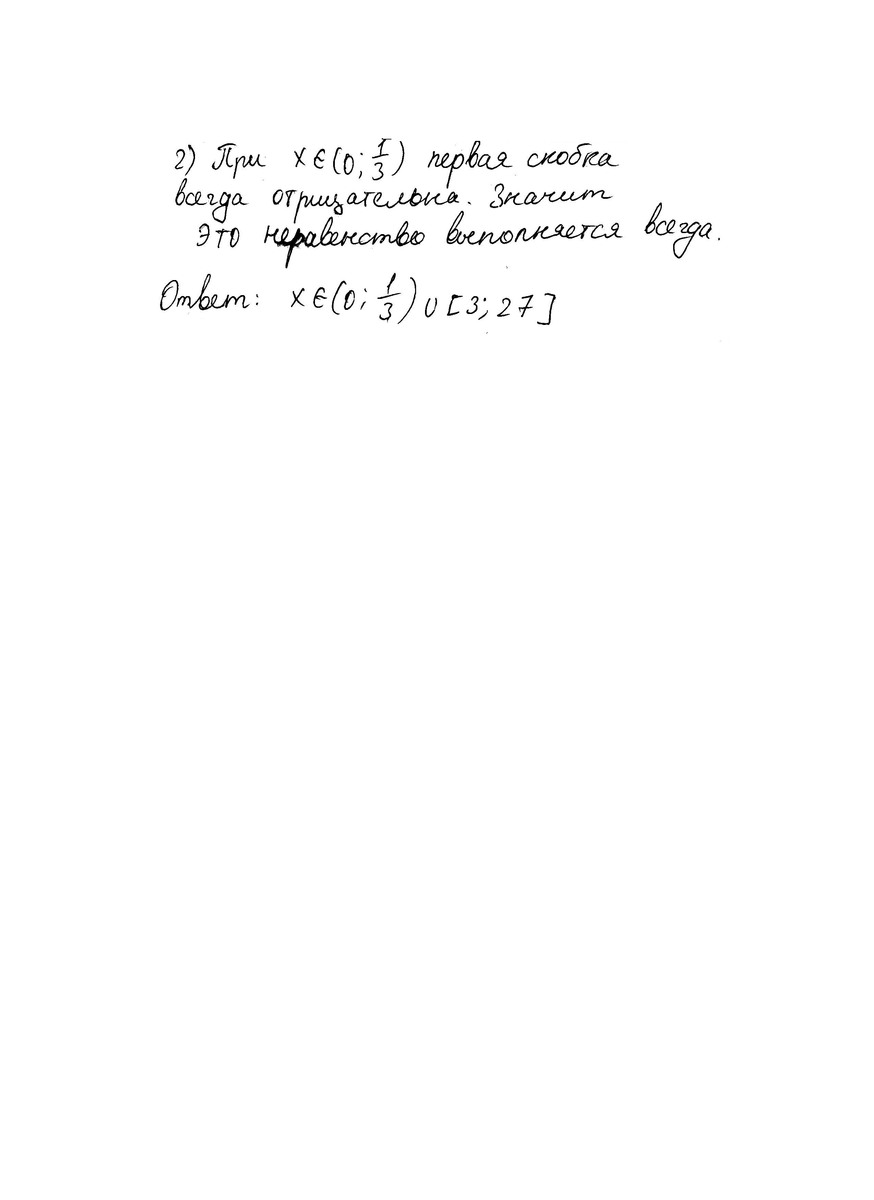 2) При x ∈ (0; 1/3) первая скобка
всегда отрицательна. Значит
это неравенство выполняется всегда.
Ответ: x ∈ (0; 1/3) ∪ [3; 27]